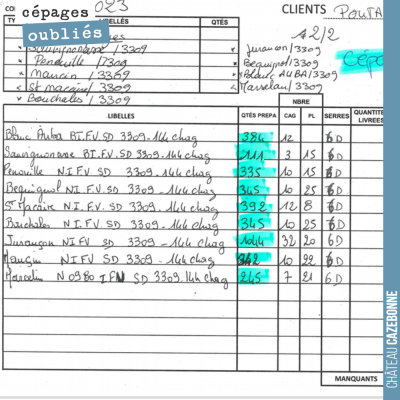 cépages
oubliés
023
CLIENTS
LIBELLÉS
QTÉS
12/2
Sauvignonasse / 3309
Jurançon / 3309
Peneuille / 3309
Bequignol / 3309
CÉPA
Mancin / 3309
AUBA / 3309
St macaire / 3309
Marselan / 3309
Bouchales / 3309
NBRE
LIBELLES
QTÉS PREPA
CAG
PL
SERRES
QUANTITE
LIVREES
Blanc Auba BI.FV.SD 3309-144 chag 384 12 6D
Sauvignonasse BI.FV.SD 3309-144 chag 111 3 15 6D
Penouille NI.FV SD 3309-144 chag 335 10 15 6D
Bequignol NI.FV.SD 3309-144 chag 345 10 25 6D
St Macaire N.I.FV.SD 3309-144 chag 392 12 8 6D
Bouchales N.I.FV.SD 3309-144 chag 345 10 25 6D
Jurançon NI FV SD 3309-144 chag 1044 32 20 6D
NI FV SD 3309-144 chag 342 10 22 6D
N 0980 SD 3309.144 chag 245 7 21 6D
MANQUANTS
CHÂTEAU CAZEBONNE